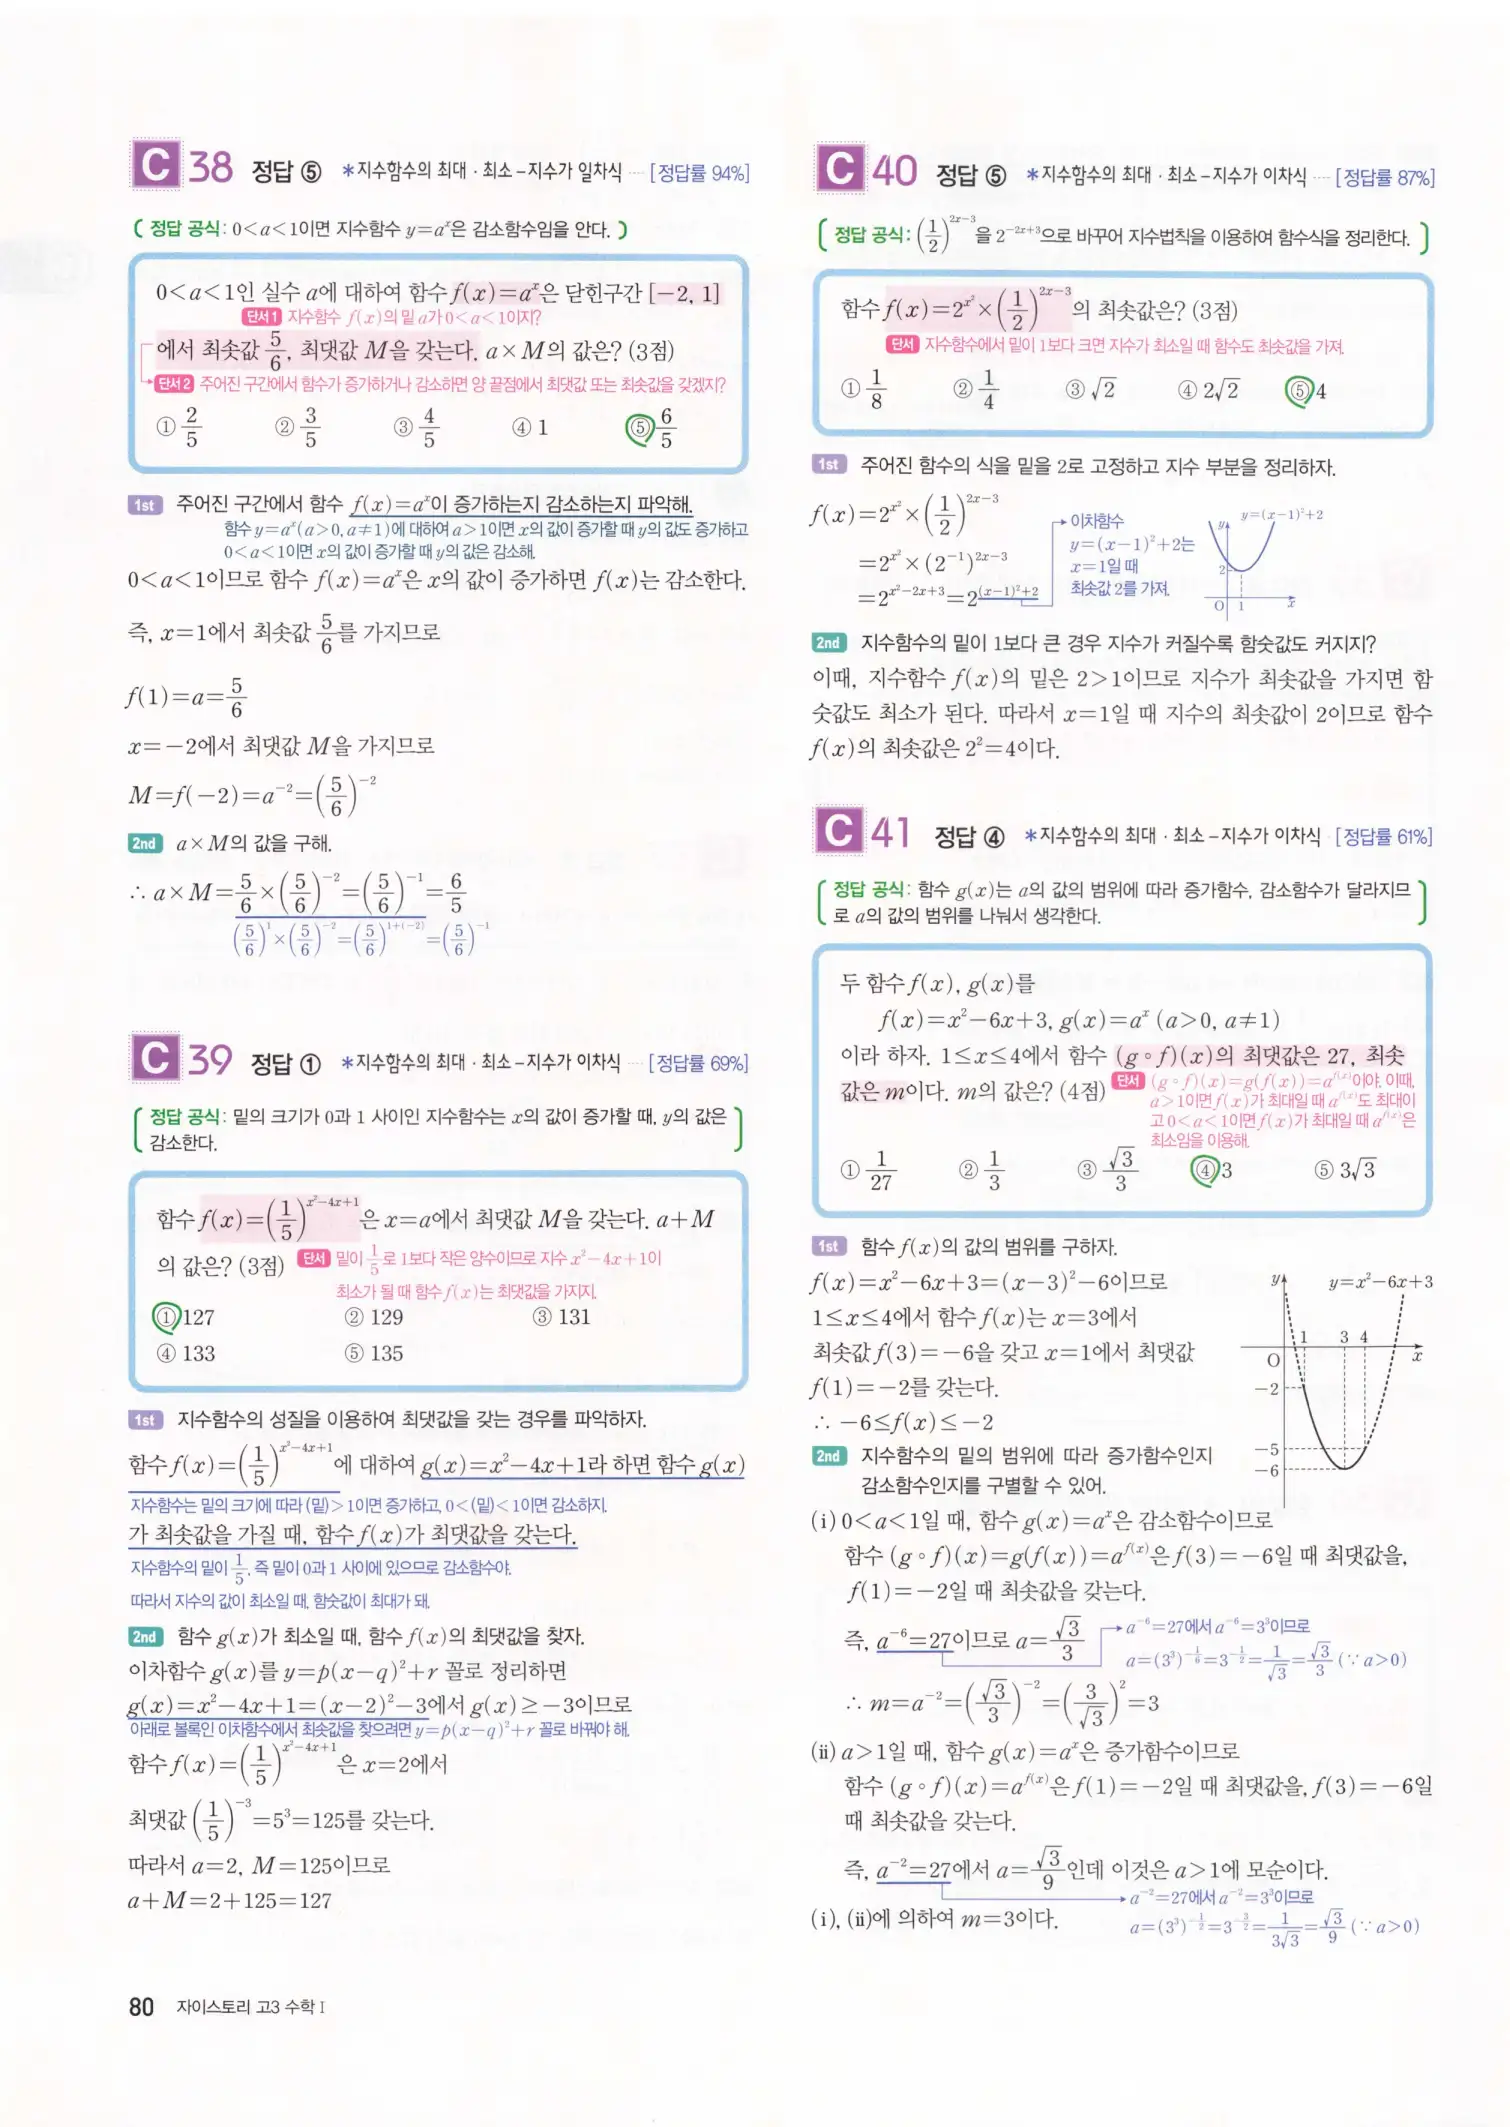 C 38 정답 ⑤ *지수함수의 최대·최소-지수가 일차식 ··· [정답률 94%]
( 정답 공식: 0<a<1이면 지수함수 y=aˣ은 감소함수임을 안다. )
0<a<1인 실수 a에 대하여 함수 f(x)=aˣ은 닫힌구간 [-2, 1]
단서1 지수함수 f(x)의 밑 a가 0<a<1이지?
에서 최솟값 5/6, 최댓값 M을 갖는다. a×M의 값은? (3점)
단서2 주어진 구간에서 함수가 증가하거나 감소하면 양 끝점에서 최댓값 또는 최솟값을 갖겠지?
① 2/5 ② 3/5 ③ 4/5 ④ 1 ⑤ 6/5
1st 주어진 구간에서 함수 f(x)=aˣ이 증가하는지 감소하는지 파악해.
함수 y=aˣ(a>0, a≠1)에 대하여 a>1이면 x의 값이 증가할 때 y의 값도 증가하고
0<a<1이면 x의 값이 증가할 때 y의 값은 감소해.
0<a<1이므로 함수 f(x)=aˣ은 x의 값이 증가하면 f(x)는 감소한다.
즉, x=1에서 최솟값 5/6를 가지므로
f(1)=a=5/6
x=-2에서 최댓값 M을 가지므로
M=f(-2)=a⁻²=(5/6)⁻²
2nd a×M의 값을 구해.
∴ a×M=5/6×(5/6)⁻²=(5/6)⁻¹=6/5
(5/6)¹×(5/6)⁻²=(5/6)^{1+(-2)}=(5/6)⁻¹
C 39 정답 ① *지수함수의 최대·최소-지수가 이차식 ··· [정답률 69%]
( 정답 공식: 밑의 크기가 0과 1 사이인 지수함수는 x의 값이 증가할 때, y의 값은
감소한다. )
함수 f(x)=(1/5)^{x²-4x+1}은 x=a에서 최댓값 M을 갖는다. a+M
의 값은? (3점) 단서 밑이 1/5로 1보다 작은 양수이므로 지수 x²-4x+1이
최소가 될 때 함수 f(x)는 최댓값을 가지지.
① 127 ② 129 ③ 131
④ 133 ⑤ 135
1st 지수함수의 성질을 이용하여 최댓값을 갖는 경우를 파악하자.
함수 f(x)=(1/5)^{x²-4x+1}에 대하여 g(x)=x²-4x+1라 하면 함수 g(x)
지수함수는 밑의 크기에 따라 (밑)>1이면 증가하고, 0<(밑)<1이면 감소하지.
가 최솟값을 가질 때, 함수 f(x)가 최댓값을 갖는다.
지수함수의 밑이 1/5, 즉 밑이 0과 1 사이에 있으므로 감소함수야.
따라서 지수의 값이 최소일 때, 함숫값이 최대가 돼.
2nd 함수 g(x)가 최소일 때, 함수 f(x)의 최댓값을 찾자.
이차함수 g(x)를 y=p(x-q)²+r 꼴로 정리하면
g(x)=x²-4x+1=(x-2)²-3에서 g(x)≥-3이므로
아래로 볼록인 이차함수에서 최솟값을 찾으려면 y=p(x-q)²+r 꼴로 바꿔야 해.
함수 f(x)=(1/5)^{x²-4x+1}은 x=2에서
최댓값 (1/5)⁻³=5³=125를 갖는다.
따라서 a=2, M=125이므로
a+M=2+125=127
80 자이스토리 고3 수학 I
C 40 정답 ⑤ *지수함수의 최대·최소-지수가 이차식 ··· [정답률 87%]
( 정답 공식: (1/2)^{2x-3}을 2^{-2x+3}으로 바꾸어 지수법칙을 이용하여 함수식을 정리한다. )
함수 f(x)=2^{x²}×(1/2)^{2x-3}의 최솟값은? (3점)
단서 지수함수에서 밑이 1보다 크면 지수가 최소일 때 함수도 최솟값을 가져.
① 1/8 ② 1/4 ③ √2 ④ 2√2 ⑤ 4
1st 주어진 함수의 식을 밑을 2로 고정하고 지수 부분을 정리하자.
f(x)=2^{x²}×(1/2)^{2x-3}
=2^{x²}×(2⁻¹)^{2x-3}
=2^{x²-2x+3}=2^{(x-1)²+2}
이차함수
y=(x-1)²+2는
x=1일 때
최솟값 2를 가져.
y y=(x-1)²+2
2
O 1 x
2nd 지수함수의 밑이 1보다 큰 경우 지수가 커질수록 함숫값도 커지지?
이때, 지수함수 f(x)의 밑은 2>1이므로 지수가 최솟값을 가지면 함
숫값도 최소가 된다. 따라서 x=1일 때 지수의 최솟값이 2이므로 함수
f(x)의 최솟값은 2²=4이다.
C 41 정답 ④ *지수함수의 최대·최소-지수가 이차식 · [정답률 61%]
( 정답 공식: 함수 g(x)는 a의 값의 범위에 따라 증가함수, 감소함수가 달라지므
로 a의 값의 범위를 나눠서 생각한다. )
두 함수 f(x), g(x)를
f(x)=x²-6x+3, g(x)=aˣ (a>0, a≠1)
이라 하자. 1≤x≤4에서 함수 (g∘f)(x)의 최댓값은 27, 최솟
값은 m이다. m의 값은? (4점) 단서 (g∘f)(x)=g(f(x))=a^{f(x)}이야. 이때,
a>1이면 f(x)가 최대일 때 a^{f(x)}도 최대이
고 0<a<1이면 f(x)가 최대일 때 a^{f(x)}은
최소임을 이용해.
① 1/27 ② 1/3 ③ √3/3 ④ 3 ⑤ 3√3
1st 함수 f(x)의 값의 범위를 구하자.
f(x)=x²-6x+3=(x-3)²-6이므로
1≤x≤4에서 함수 f(x)는 x=3에서
최솟값 f(3)=-6을 갖고 x=1에서 최댓값
f(1)=-2를 갖는다.
∴ -6≤f(x)≤-2
y y=x²-6x+3
1 3 4
O x
-2
-5
-6
2nd 지수함수의 밑의 범위에 따라 증가함수인지
감소함수인지를 구별할 수 있어.
(i) 0<a<1일 때, 함수 g(x)=aˣ은 감소함수이므로
함수 (g∘f)(x)=g(f(x))=a^{f(x)}은 f(3)=-6일 때 최댓값을,
f(1)=-2일 때 최솟값을 갖는다.
즉, a⁻⁶=27이므로 a=√3/3
a⁻⁶=27에서 a⁻⁶=3³이므로
a=(3³)^{-1/6}=3^{-1/2}=1/√3=√3/3 (∵ a>0)
∴ m=a⁻²=(√3/3)⁻²=(3/√3)²=3
(ii) a>1일 때, 함수 g(x)=aˣ은 증가함수이므로
함수 (g∘f)(x)=a^{f(x)}은 f(1)=-2일 때 최댓값을, f(3)=-6일
때 최솟값을 갖는다.
즉, a⁻²=27에서 a=√3/9인데 이것은 a>1에 모순이다.
a⁻²=27에서 a⁻²=3³이므로
a=(3³)^{-1/2}=3^{-3/2}=1/3√3=√3/9 (∵ a>0)
(i), (ii)에 의하여 m=3이다.